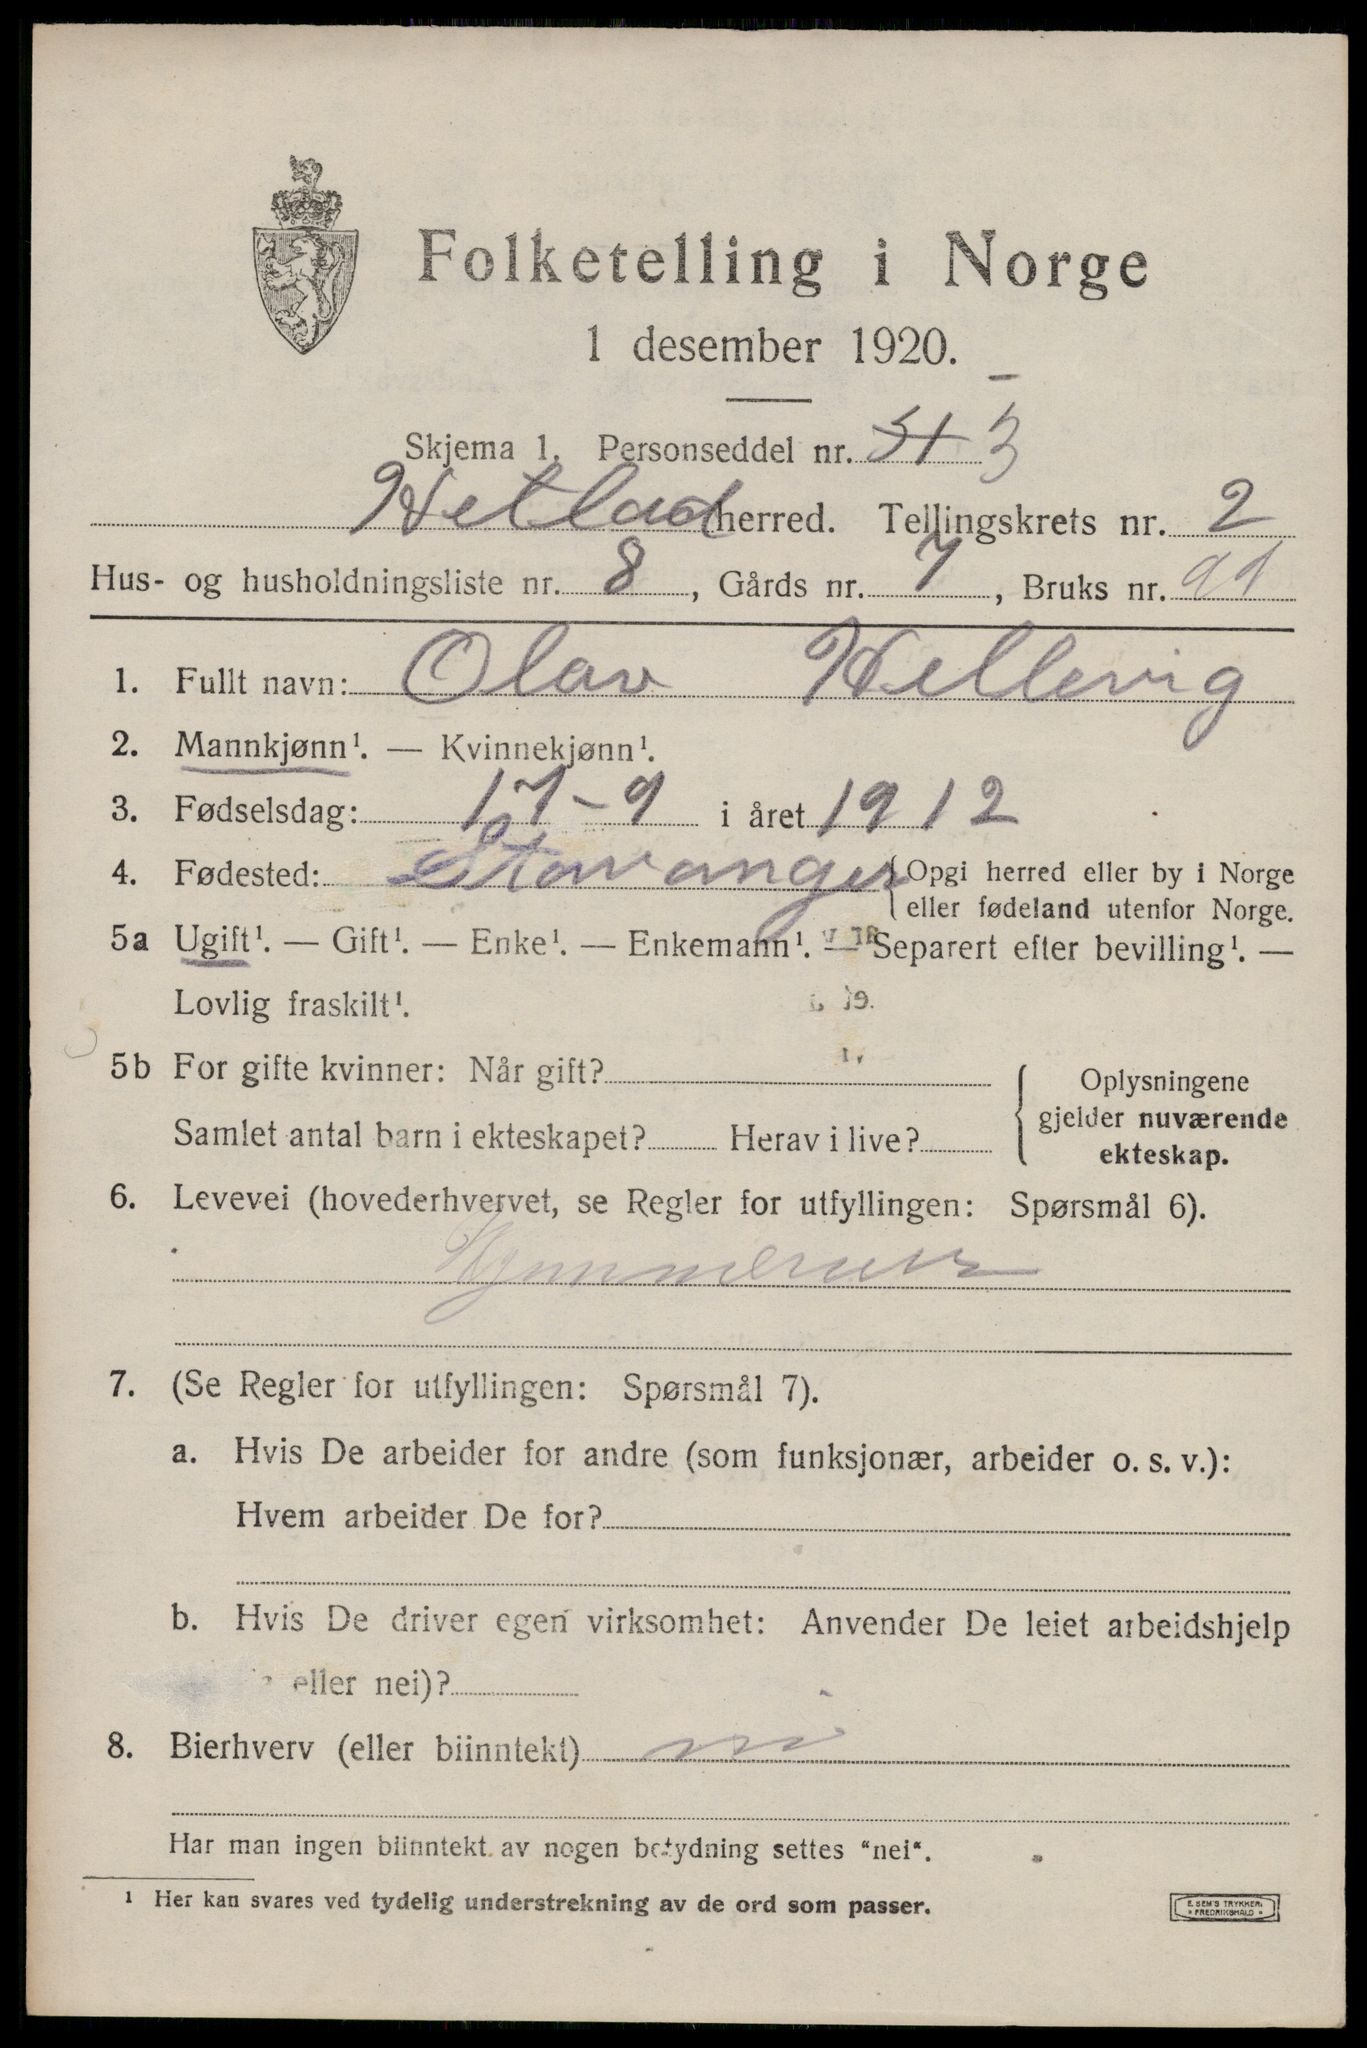 Folketelling i Norge
1 desember 1920.
Skjema 1. Personseddel nr. 3
Hetland herred. Tellingskrets nr. 2
Hus- og husholdningsliste nr. 8, Gårds nr. 7, Bruks nr. 99
1. Fullt navn: Olav Hellevig
2. Mannkjønn¹. — Kvinnekjønn¹.
3. Fødselsdag: 17-9 i året 1912
4. Fødested: Stavanger {Opgi herred eller by i Norge
eller fødeland utenfor Norge.
5a Ugift¹. — Gift¹. — Enke¹. — Enkemann¹. — Separert efter bevilling¹. —
Lovlig fraskilt¹.
5b For gifte kvinner: Når gift?
Samlet antal barn i ekteskapet? Herav i live?
Oplysningene
gjelder nuværende
ekteskap.
6. Levevei (hovederhvervet, se Regler for utfyllingen: Spørsmål 6).
Hjemmeværende
7. (Se Regler for utfyllingen: Spørsmål 7).
a. Hvis De arbeider for andre (som funksjonær, arbeider o. s. v.):
Hvem arbeider De for?
b. Hvis De driver egen virksomhet: Anvender De leiet arbeidshjelp
eller nei)?
8. Bierhverv (eller biinntekt) nei
Har man ingen biinntekt av nogen betydning settes "nei".
¹ Her kan svares ved tydelig understrekning av de ord som passer.
E. SEM'S TRYKKERI
FREDRIKSHALD